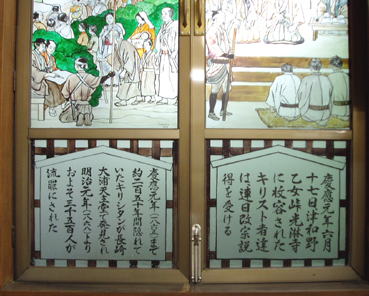 慶應元年六月
十七日津和野
乙女峠光淋寺
に収容された
キリスト者達
は連日改宗説
得を受ける
慶應元年(一八六五)まで
約二百五十年間隠れて
いたキリシタンが長崎
大浦天主堂で発見され
明治元年(一八六八)より
およそ三千五百人が
流罪にされた